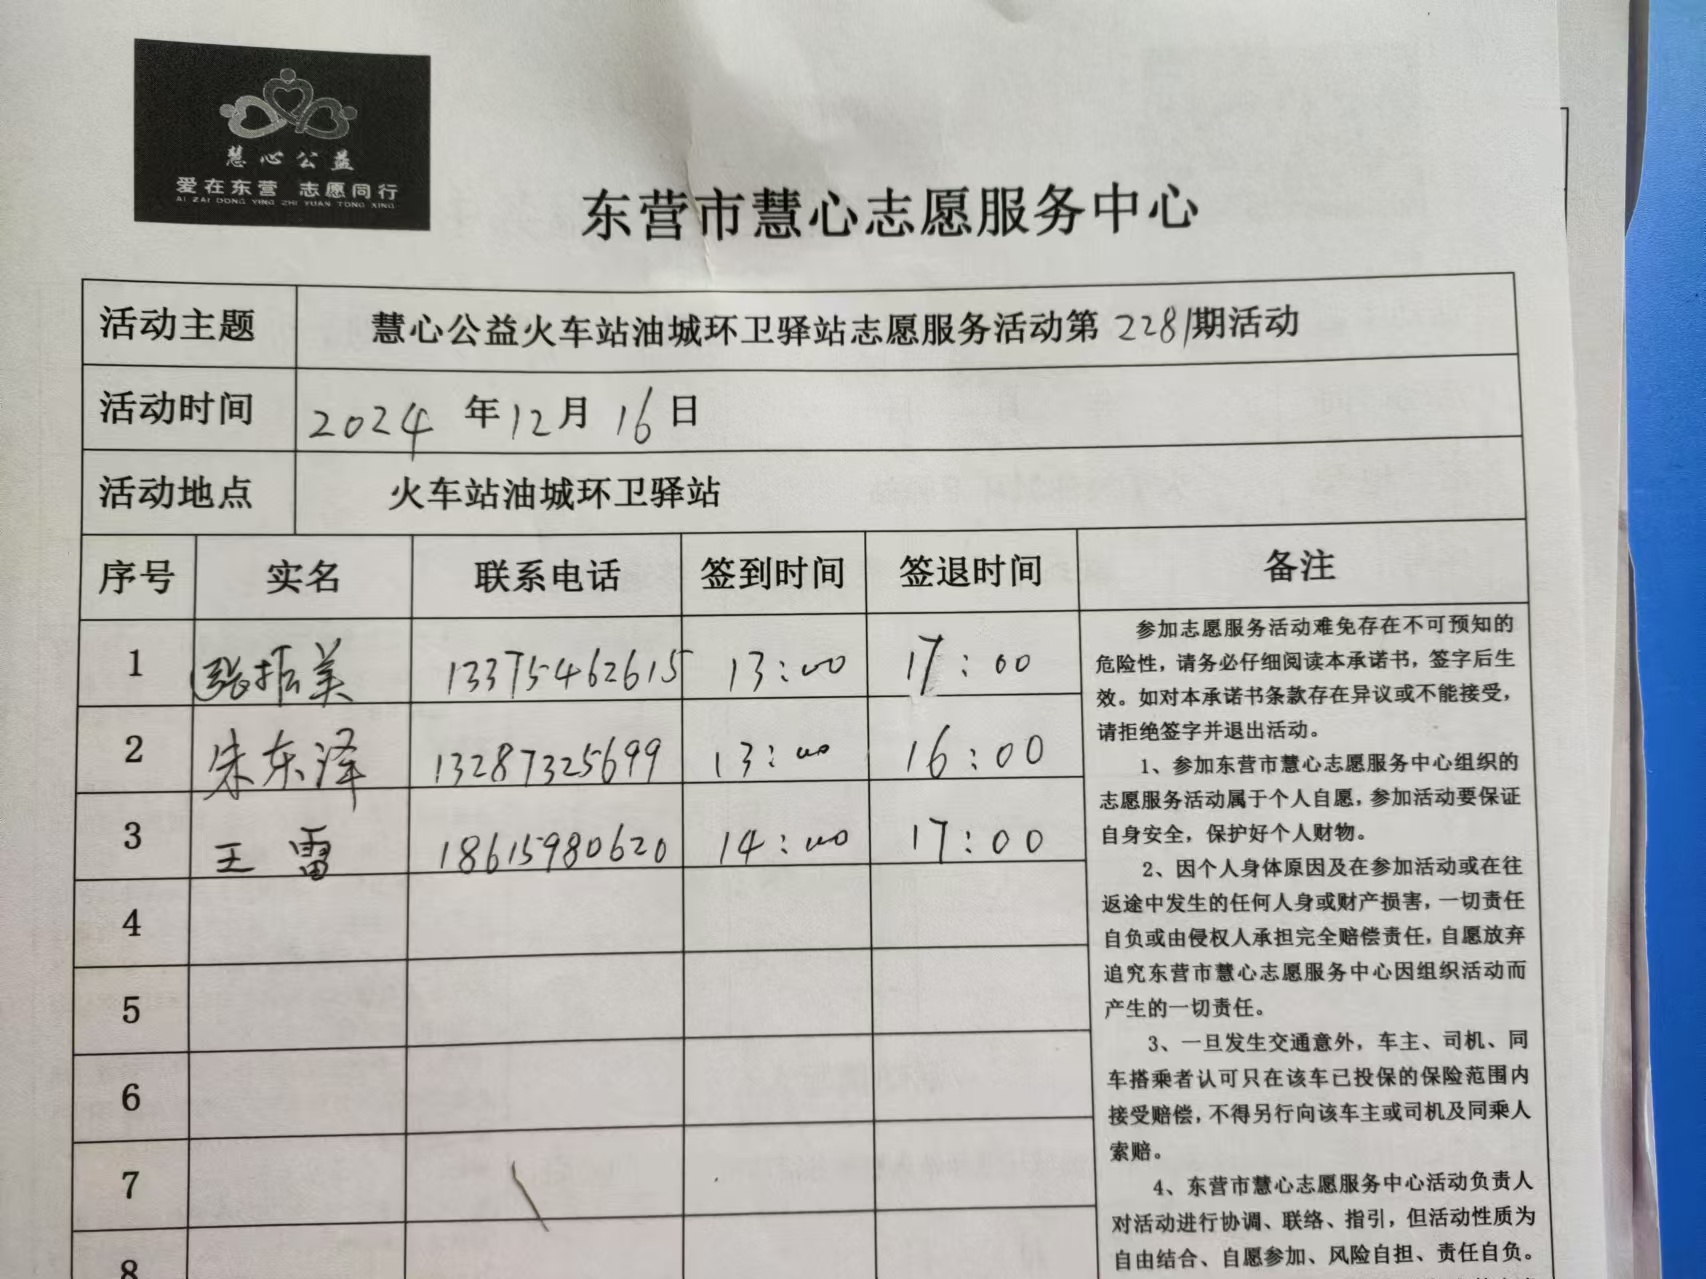 慧心公益
爱在东营 志愿同行
AI ZAI DONG YING ZHI YUAN TONG XING
东营市慧心志愿服务中心
活动主题 慧心公益火车站油城环卫驿站志愿服务活动第2281期活动
活动时间 2024年12月16日
活动地点 火车站油城环卫驿站
序号 实名 联系电话 签到时间 签退时间 备注
1 张振美 13375462615 13:00 17:00
2 朱东泽 13287325699 13:00 16:00
3 王雷 18615980620 14:00 17:00
4
5
6
7
8
参加志愿服务活动难免存在不可预知的
危险性，请务必仔细阅读本承诺书，签字后生
效。如对本承诺书条款存在异议或不能接受，
请拒绝签字并退出活动。
1、参加东营市慧心志愿服务中心组织的
志愿服务活动属于个人自愿，参加活动要保证
自身安全，保护好个人财物。
2、因个人身体原因及在参加活动或在往
返途中发生的任何人身或财产损害，一切责任
自负或由侵权人承担完全赔偿责任，自愿放弃
追究东营市慧心志愿服务中心因组织活动而
产生的一切责任。
3、一旦发生交通意外，车主、司机、同
车搭乘者认可只在该车已投保的保险范围内
接受赔偿，不得另行向该车主或司机及同乘人
索赔。
4、东营市慧心志愿服务中心活动负责人
对活动进行协调、联络、指引，但活动性质为
自由结合、自愿参加、风险自担、责任自负。